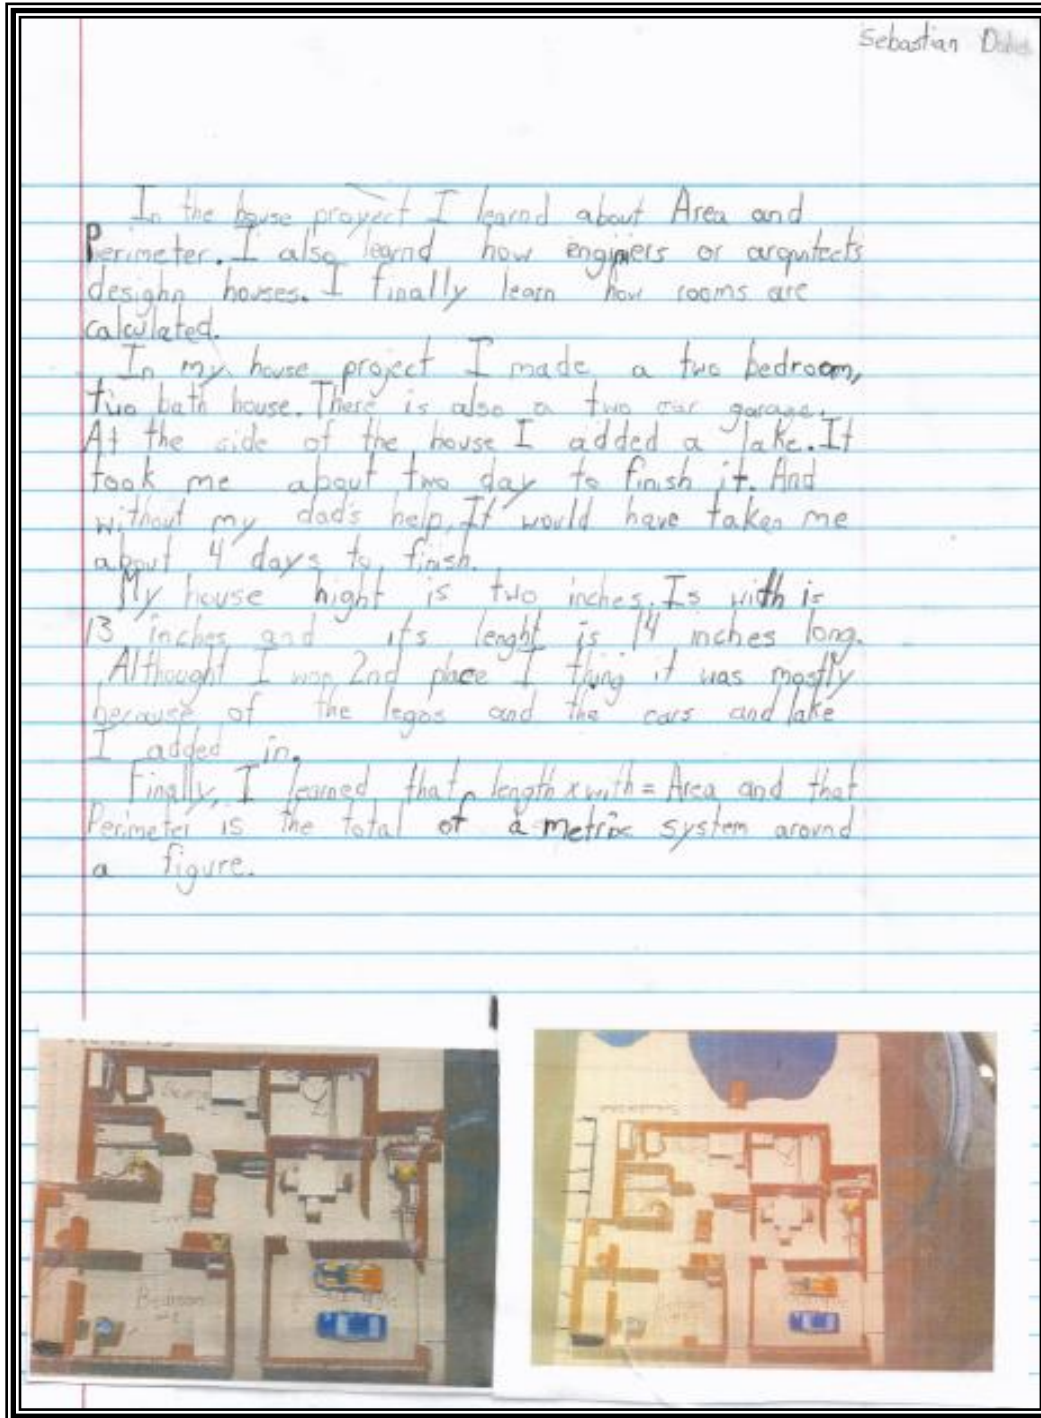 Sebastian
In the house proyect I learnd about Area and
Perimeter. I also legrnd how enginiers or arquitects
desighn houses. I finally learn how rooms are
calculated.
In my house project I made a two bedroom,
two bath house. There is also a two car garage.
At the side of the house I added a lake. It
took me about two day to finish it. And
without my dad's help, It would have taken me
about 4 days to finish.
My house hight is two inches. Is with is
13 inches and its lenght is 14 inches long.
Althought I won 2nd place I thing it was mostly
because of the legos and the cars and lake
I added in.
Finally, I learned that length x with = Area and that
Perimeter is the total of a metric system around
a figure.
Bedroom